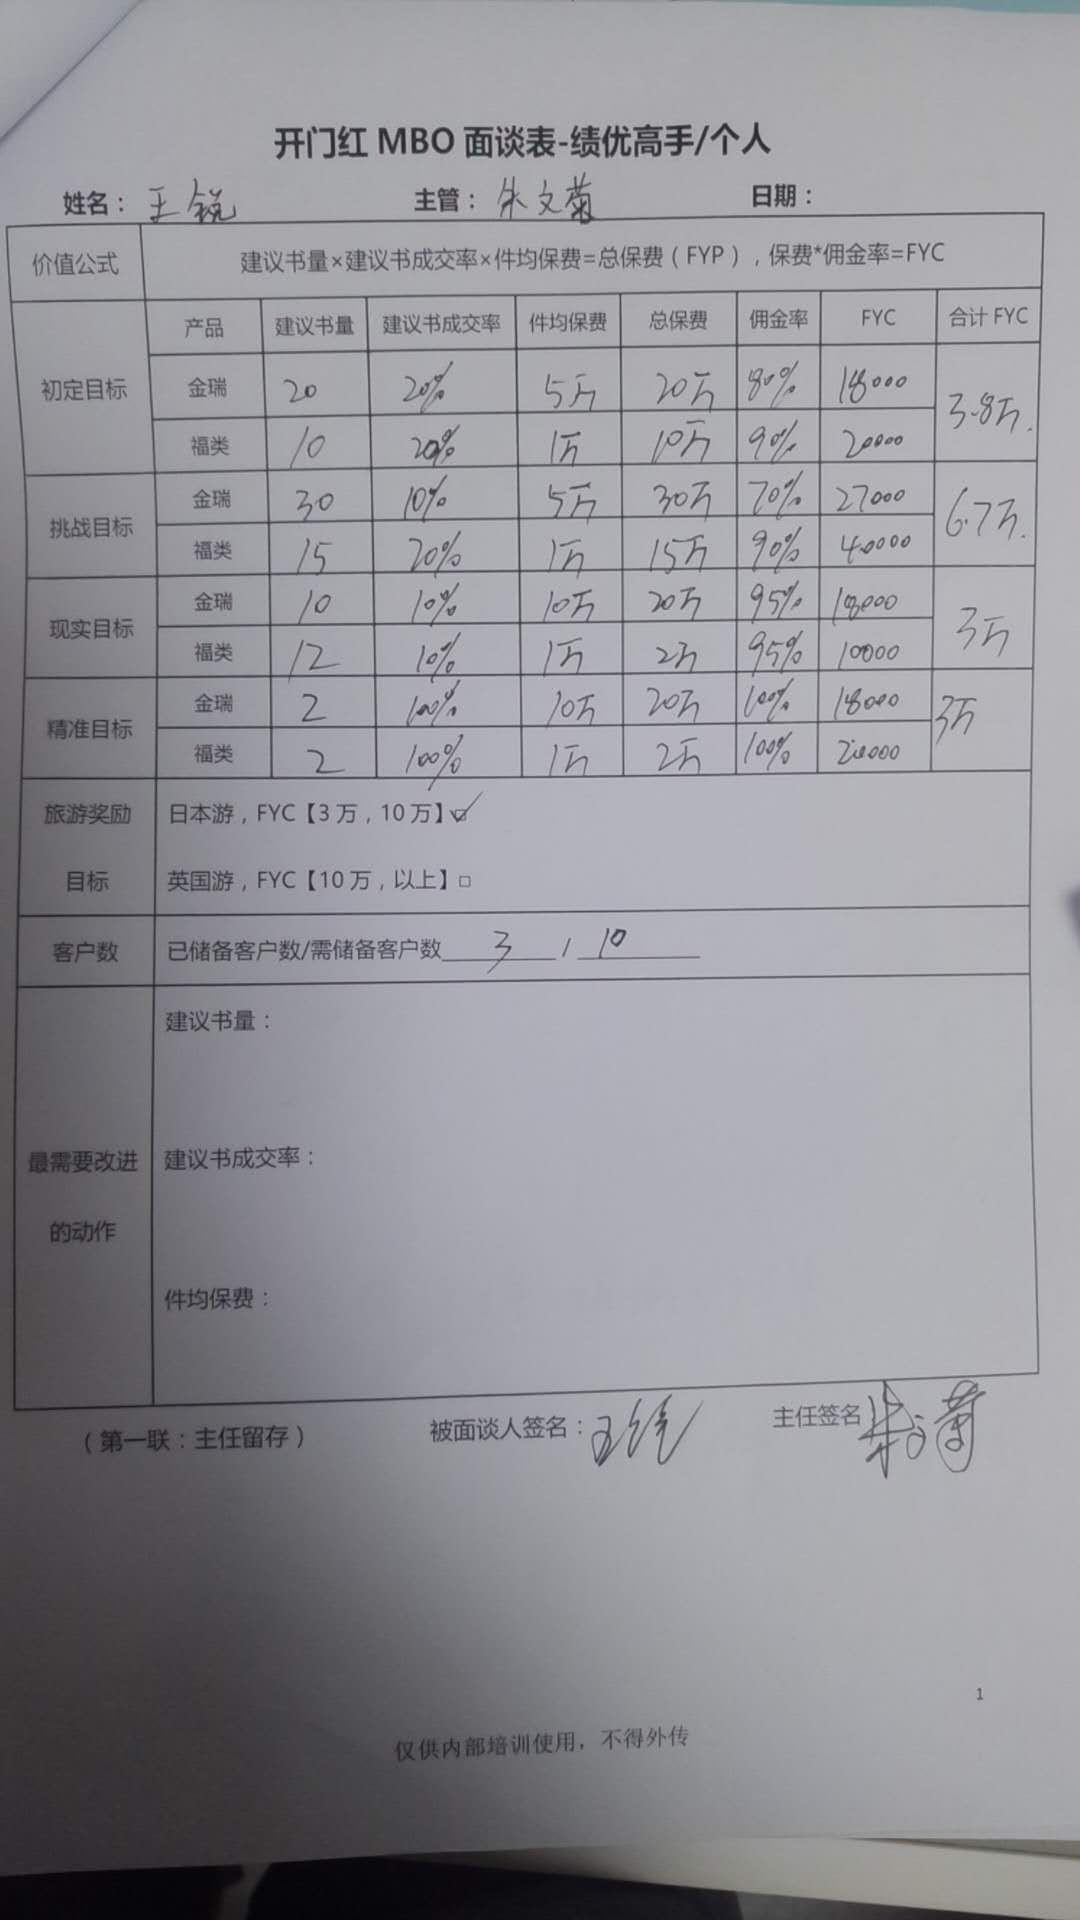 开门红 MBO 面谈表-绩优高手/个人
姓名： 王锐 主管： 朱文菊 日期：
价值公式 建议书量×建议书成交率×件均保费=总保费（FYP），保费*佣金率=FYC
产品 建议书量 建议书成交率 件均保费 总保费 佣金率 FYC 合计 FYC
初定目标 金瑞 20 20% 5万 20万 80% 18000 3.8万.
福类 10 20% 1万 10万 90% 20000
挑战目标 金瑞 30 10% 5万 30万 70% 27000 6.7万.
福类 15 20% 1万 15万 90% 40000
现实目标 金瑞 10 10% 10万 20万 95% 18000 3万
福类 12 10% 1万 2万 95% 10000
精准目标 金瑞 2 100% 10万 20万 100% 18000 3万
福类 2 100% 1万 2万 100% 20000
旅游奖励 日本游，FYC【3万，10万】☑
目标 英国游，FYC【10万，以上】□
客户数 已储备客户数/需储备客户数 3 / 10
建议书量：
最需要改进 建议书成交率：
的动作
件均保费：
（第一联：主任留存） 被面谈人签名：王锐 主任签名 朱文菊
1
仅供内部培训使用，不得外传